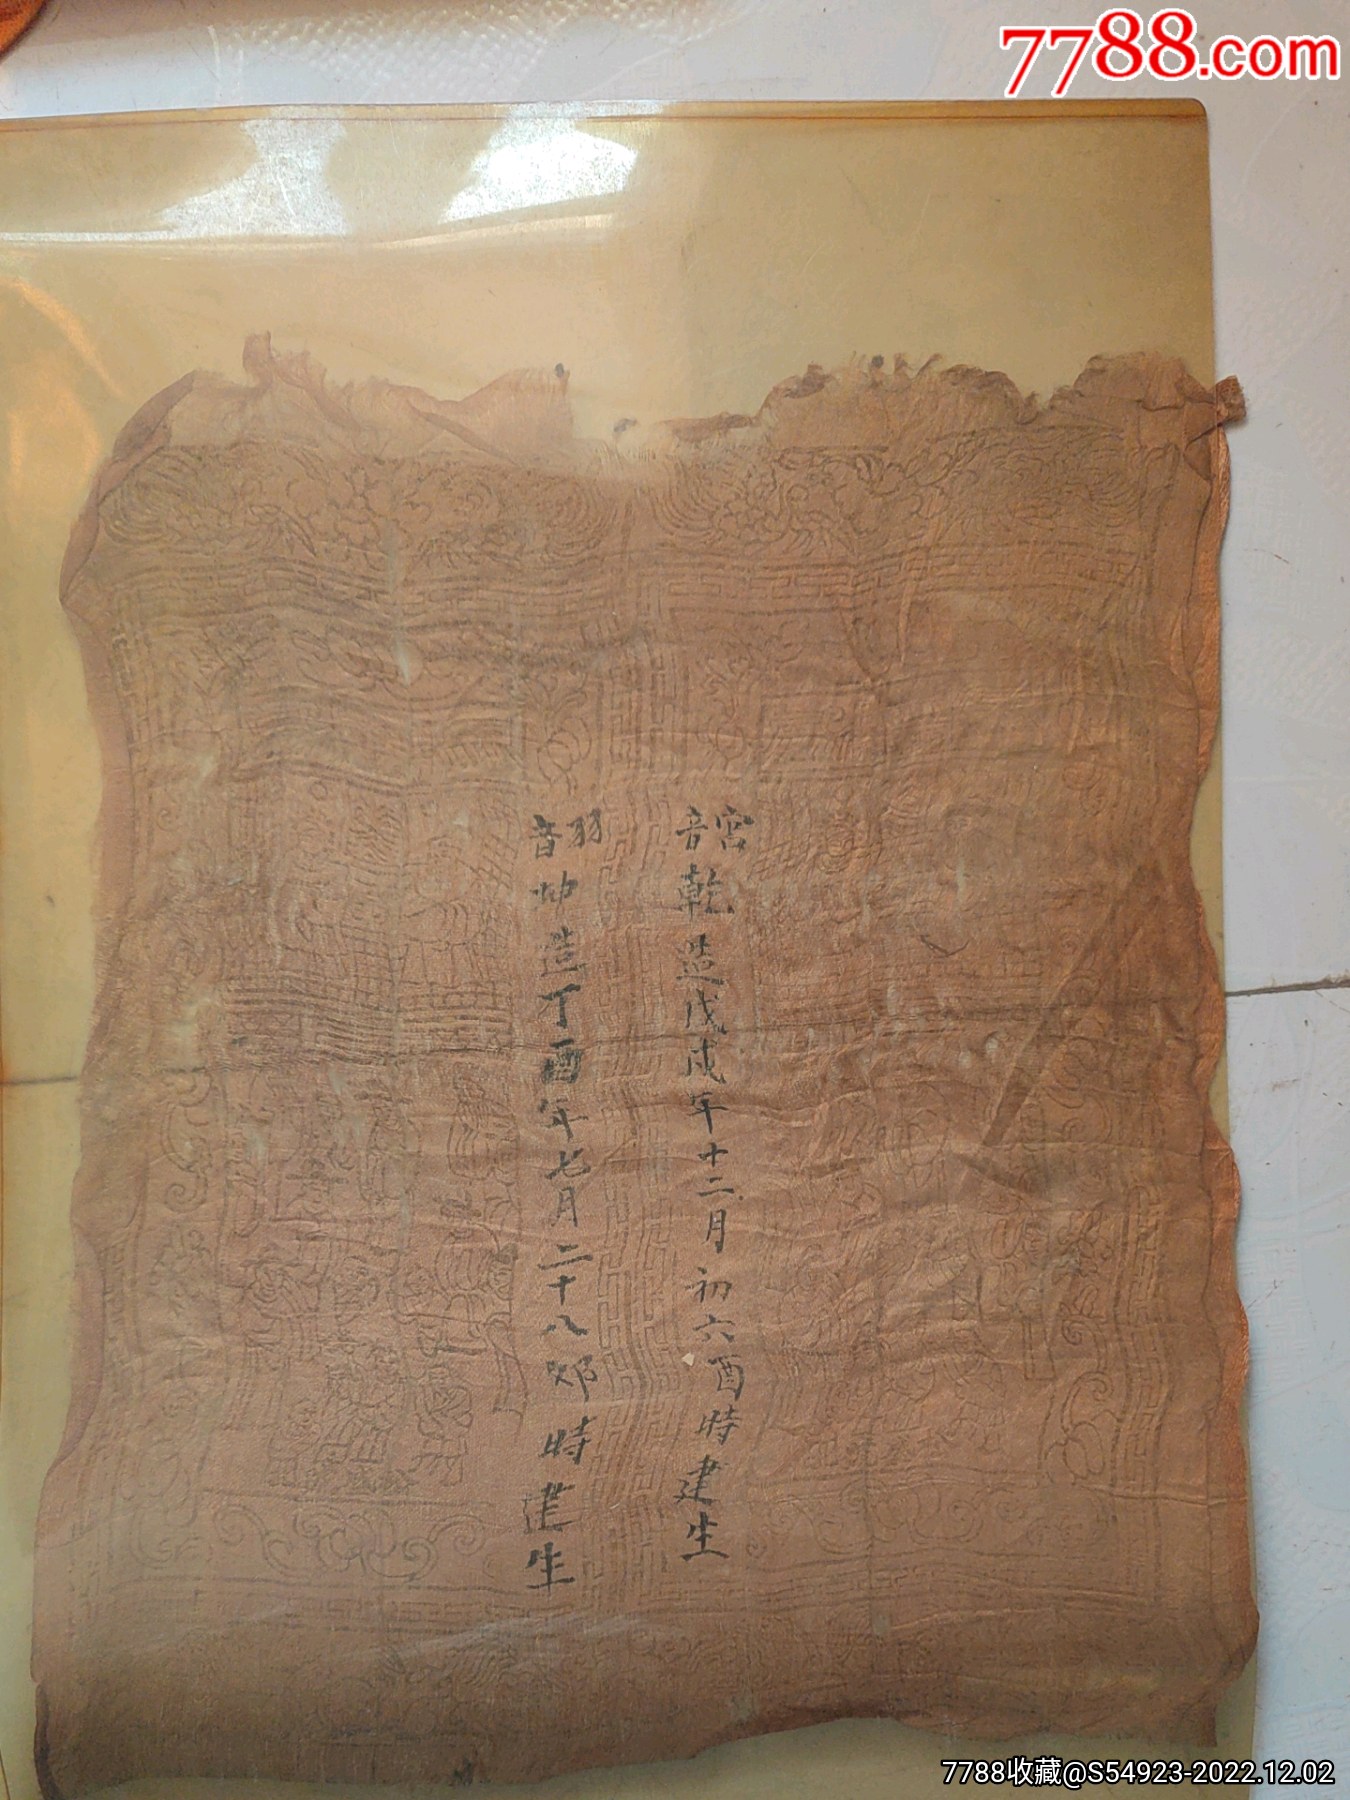 7788.com
宮音乾造戊戌年十二月初六酉時建生
羽音坤造丁酉年七月二十八卯時建生
7788收藏@S54923-2022.12.02